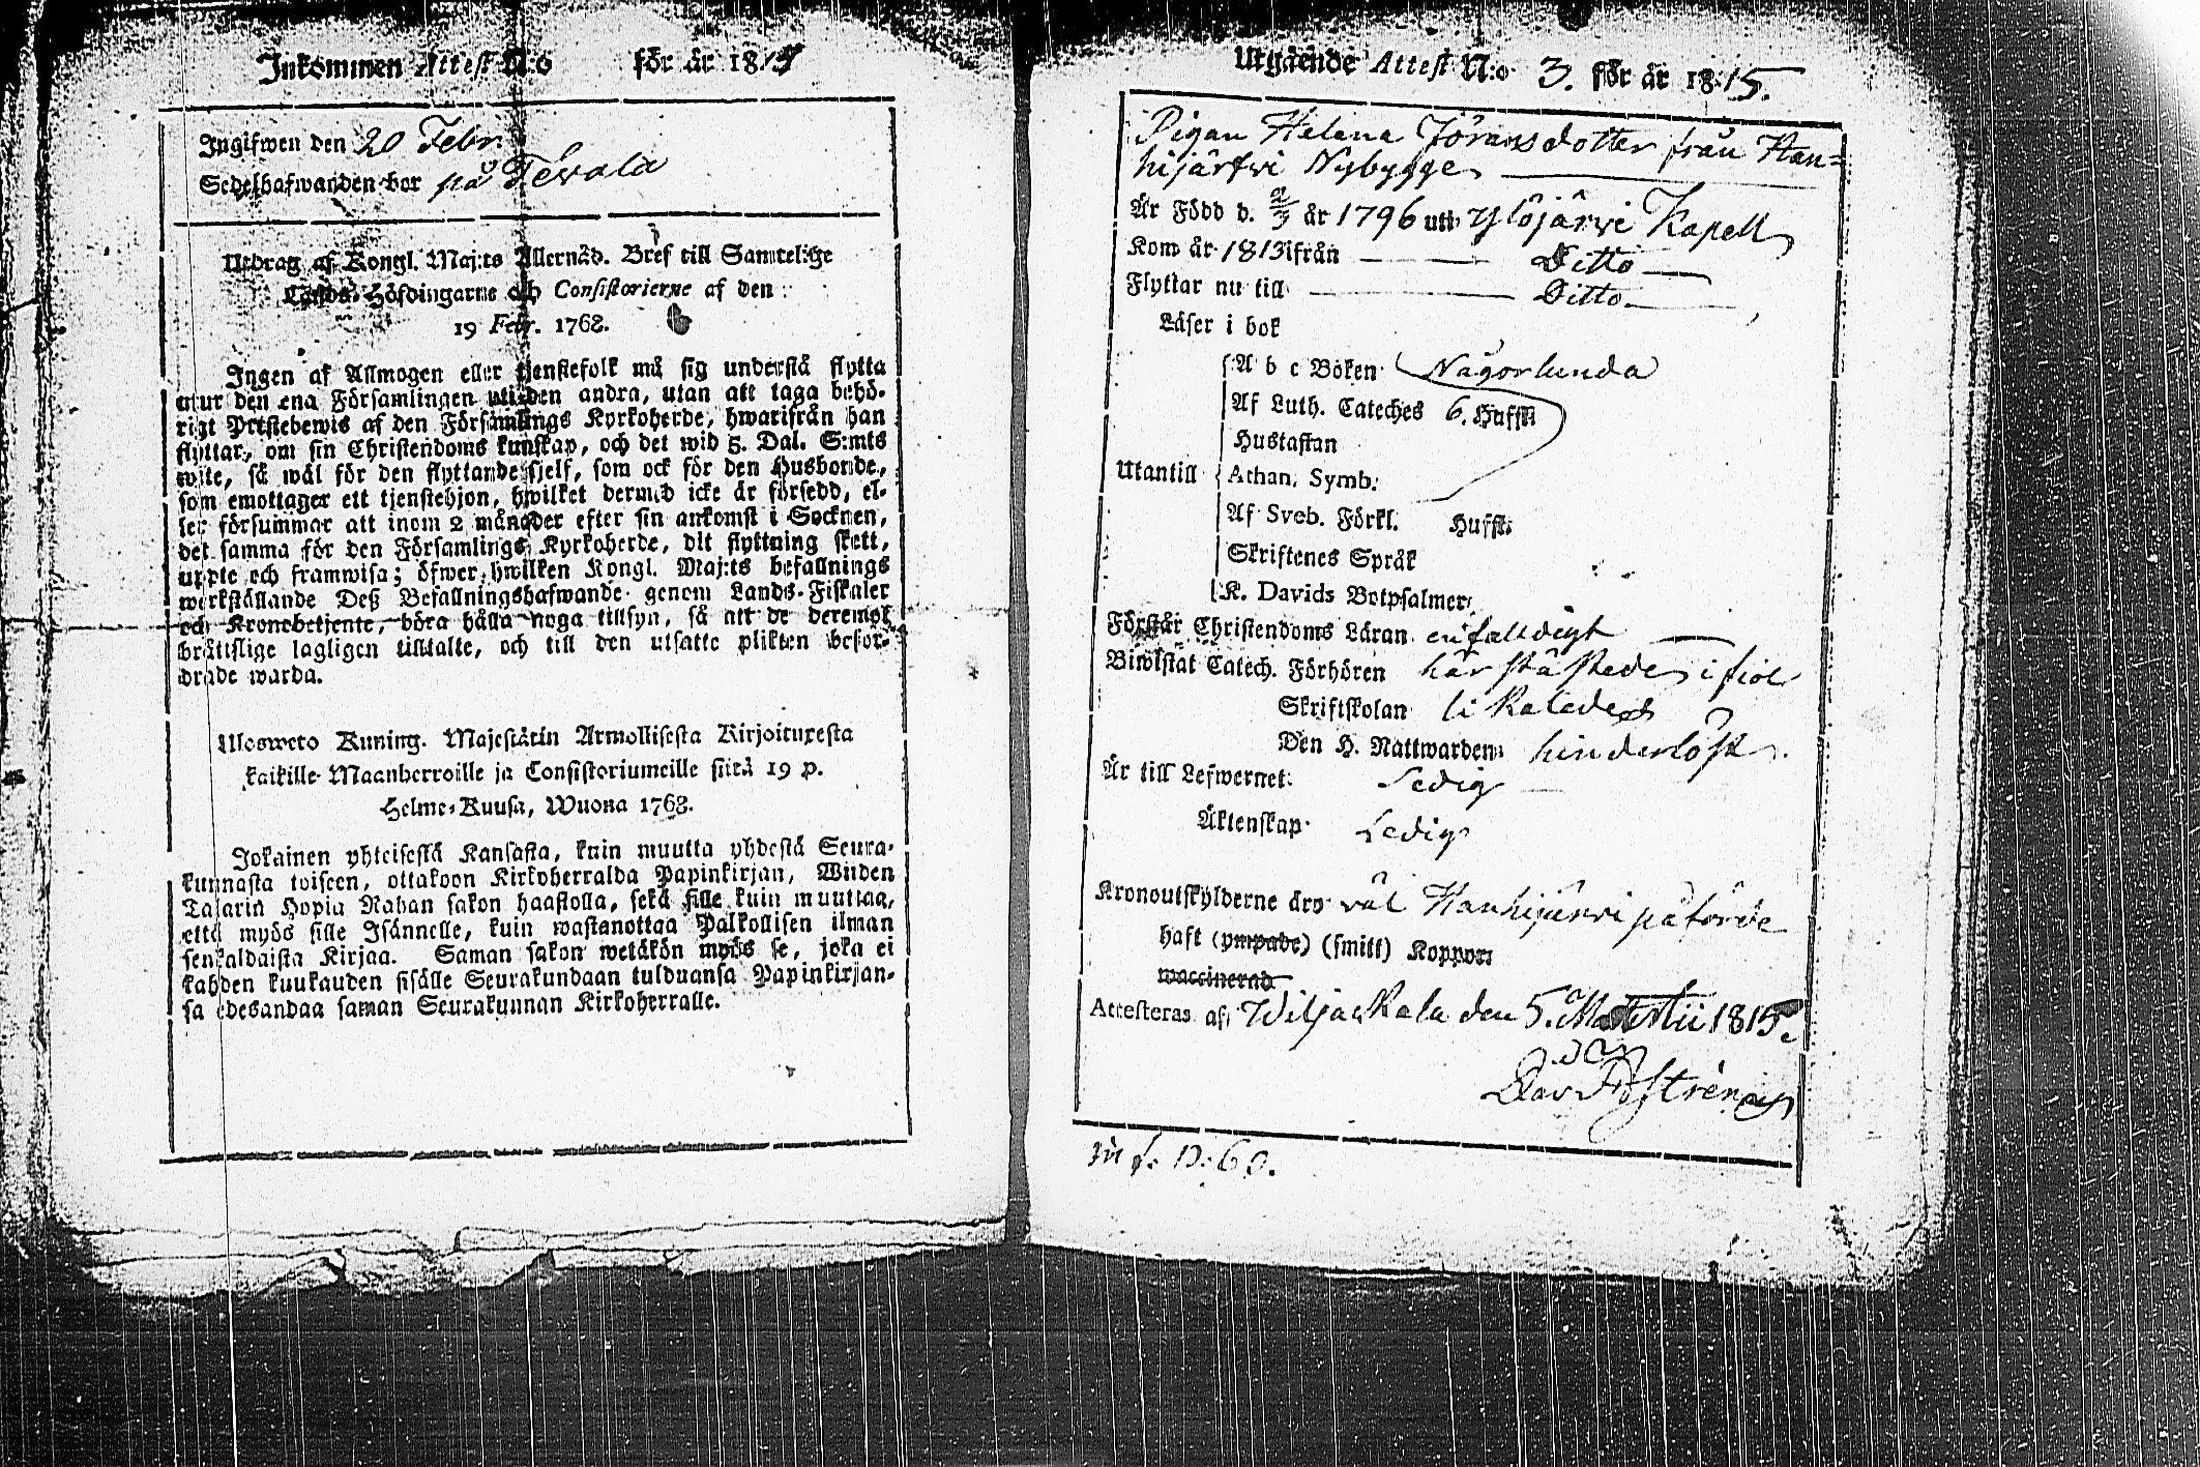 Inkommen Attest N:o för år 1815
Ingifwen den 20 Febr.
Sedelhafwanden bor på Tevala
Utdrag af Kongl. Maj:ts Allernåd. Bref till Samtelige
Lands-Höfdingarne och Consistorierne af den
19 Febr. 1768.
Ingen af Allmogen eller tjenstefolk må sig understå flytta
utur den ena Församlingen uti den andra, utan att taga behö-
rigt Prestebewis af den Församlings Kyrkoherde, hwarifrån han
flyttar, om sin Christendoms kunskap, och det wid 5. Dal. S:mts
wite, så wäl för den flyttande sjelf, som ock för den Husbonde,
som emottager ett tjenstehjon, hwilket dermed icke är försedd, el-
ler försummar att inom 2 månader efter sin ankomst i Socknen,
det samma för den Församlings Kyrkoherde, dit flyttning skett,
uppte och framwisa; öfwer hwilken Kongl. Maj:ts befallnings
werkställande Deß Befallningshafwande genom Lands-Fiskaler
och Kronobetjente, böra hålla noga tillsyn, så att de deremot
brätislige lagligen tilltalte, och till den utsatte plikten beför-
drade warda.
Ulosweto Kuning. Majestätin Armollisesta Kirjoituxesta
kaikille Maanherroille ja Consistoriumeille siitä 19 p.
Helme-Kuusa, Wuona 1768.
Jokainen yhteisestä Kansasta, kuin muutta yhdestä Seura-
kunnasta toiseen, ottakoon Kirkoherralda Papinkirjan, Wiiden
Talarin Hopia Rahan sakon haastolla, sekä sille kuin muuttaa,
että myös sille Isännelle, kuin wastanottaa Palkollisen ilman
senkaldaista Kirjaa. Saman sakon wetäkön myös se, joka ei
kahden kuukauden sisälle Seurakundaan tulduansa Papinkirjan-
sa edesandaa saman Seurakunnan Kirkoherralle.
Utgående Attest N:o 3. för år 1815.
Pigan Helena Jöransdotter från Han=
hijärfvi Nybygge
Är Född d. 2/3 år 1796 uti Ylöjärvi Kapell
Kom år 1813 ifrån Ditto
Flyttar nu till Ditto
Läser i bok
A b c Boken Någorlunda
Af Luth. Cateches 6. Hufst:
Hustaflan
Utantill Athan. Symb.
Af Sveb. Förkl. Hufst:
Skriftenes Språk
K. Davids Botpsalmer
Förstår Christendoms Läran enfalldigt
Biwistat Catech. Förhören härstädes i fiol
Skriftskolan likaledes
Den H. Nattwarden hinderlöst
Är till Lefwernet Sedig
Äktenskap Ledig
Kronoutskylderne äro väl Hanhijärvi påförde
haft (ympade) (smitt) Koppor
waccinerad
Attesteras af Wiljackala den 5. Martii 1815.
Dav
In f. p. 60.